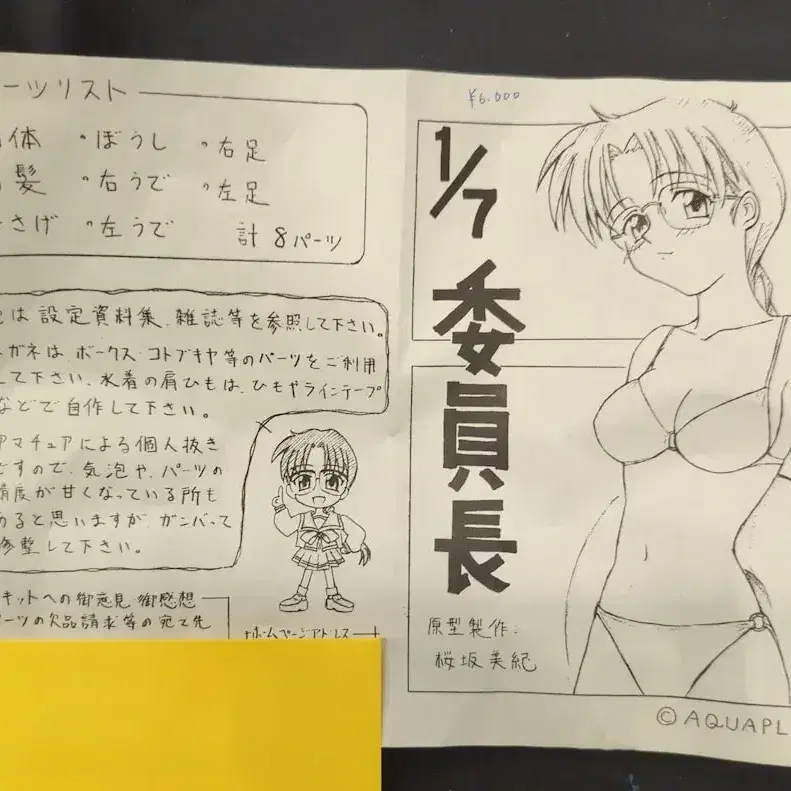 ーツリスト
体 ・ぼうし ・右足
髪 ・右うで ・左足
さげ ・左うで 計 8パーツ
は 設定資料集、雑誌等を参照して下さい。
ガネは、ボークス・コトブキヤ等のパーツをご利用
して下さい、水着の肩ひもは、ひもやラインテープ
などで自作して下さい。
アマチュアによる個人抜き
ですので、気泡や、パーツの
精度が甘くなっている所も
あると思いますが、ガンバって
修整して下さい。
キットへの御意見・御感想
パーツの欠品請求等の宛て先
ホームページアドレス
¥6.000
1/7
委員長
原型製作:
桜坂美紀
© AQUAPL